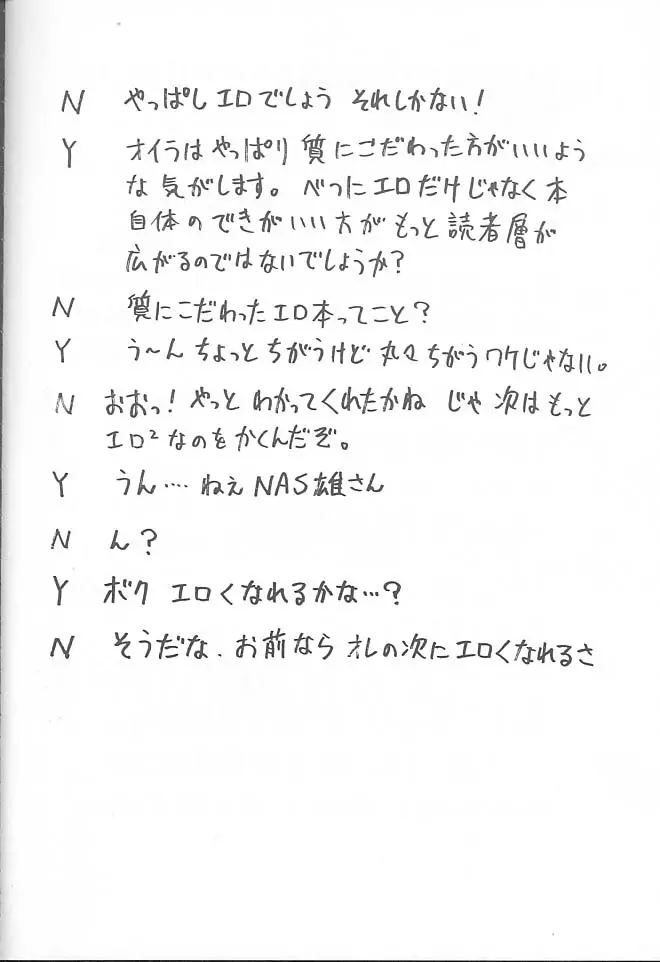 N やっぱしエロでしょう それしかない!
Y オイラはやっぱり質にこだわった方がいいよう
な気がします。べつにエロだけじゃなく本
自体のできがいい方がもっと読者層が
広がるのではないでしょうか?
N 質にこだわったエロ本ってこと?
Y う〜んちょっとちがうけど丸々ちがうワケじゃない。
N おおっ!やっとわかってくれたかね じゃ次はもっと
エロ²なのをかくんだぞ。
Y うん‥‥ねえNAS雄さん
N ん?
Y ボク エロくなれるかな…?
N そうだな.お前ならオレの次にエロくなれるさ